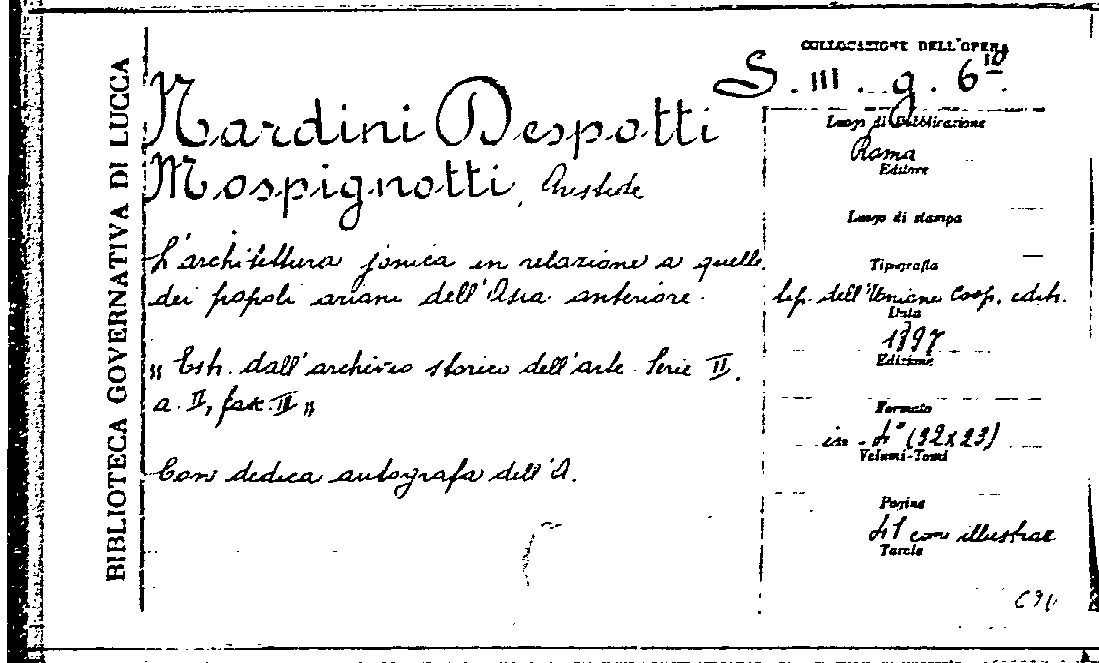 BIBLIOTECA GOVERNATIVA DI LUCCA
COLLOCAZIONE DELL'OPERA
S. III. g. 6 10
Nardini Despotti
Mospignotti, Aristide
L'architettura jonica in relazione a quelle
dei popoli ariani dell'Asia anteriore.
„ Estr. dall'archivio storico dell'arte Serie II.
a. II, fasc. III „
Con dedica autografa dell'A.
Luogo di Pubblicazione
Roma
Editore
Luogo di stampa
Tipografia
tip. dell'Unione Coop. edit.
Data
Edizione
Formato
in-4° (32x23)
Volumi-Tomi
Pagine
41 con illustraz
Tavole